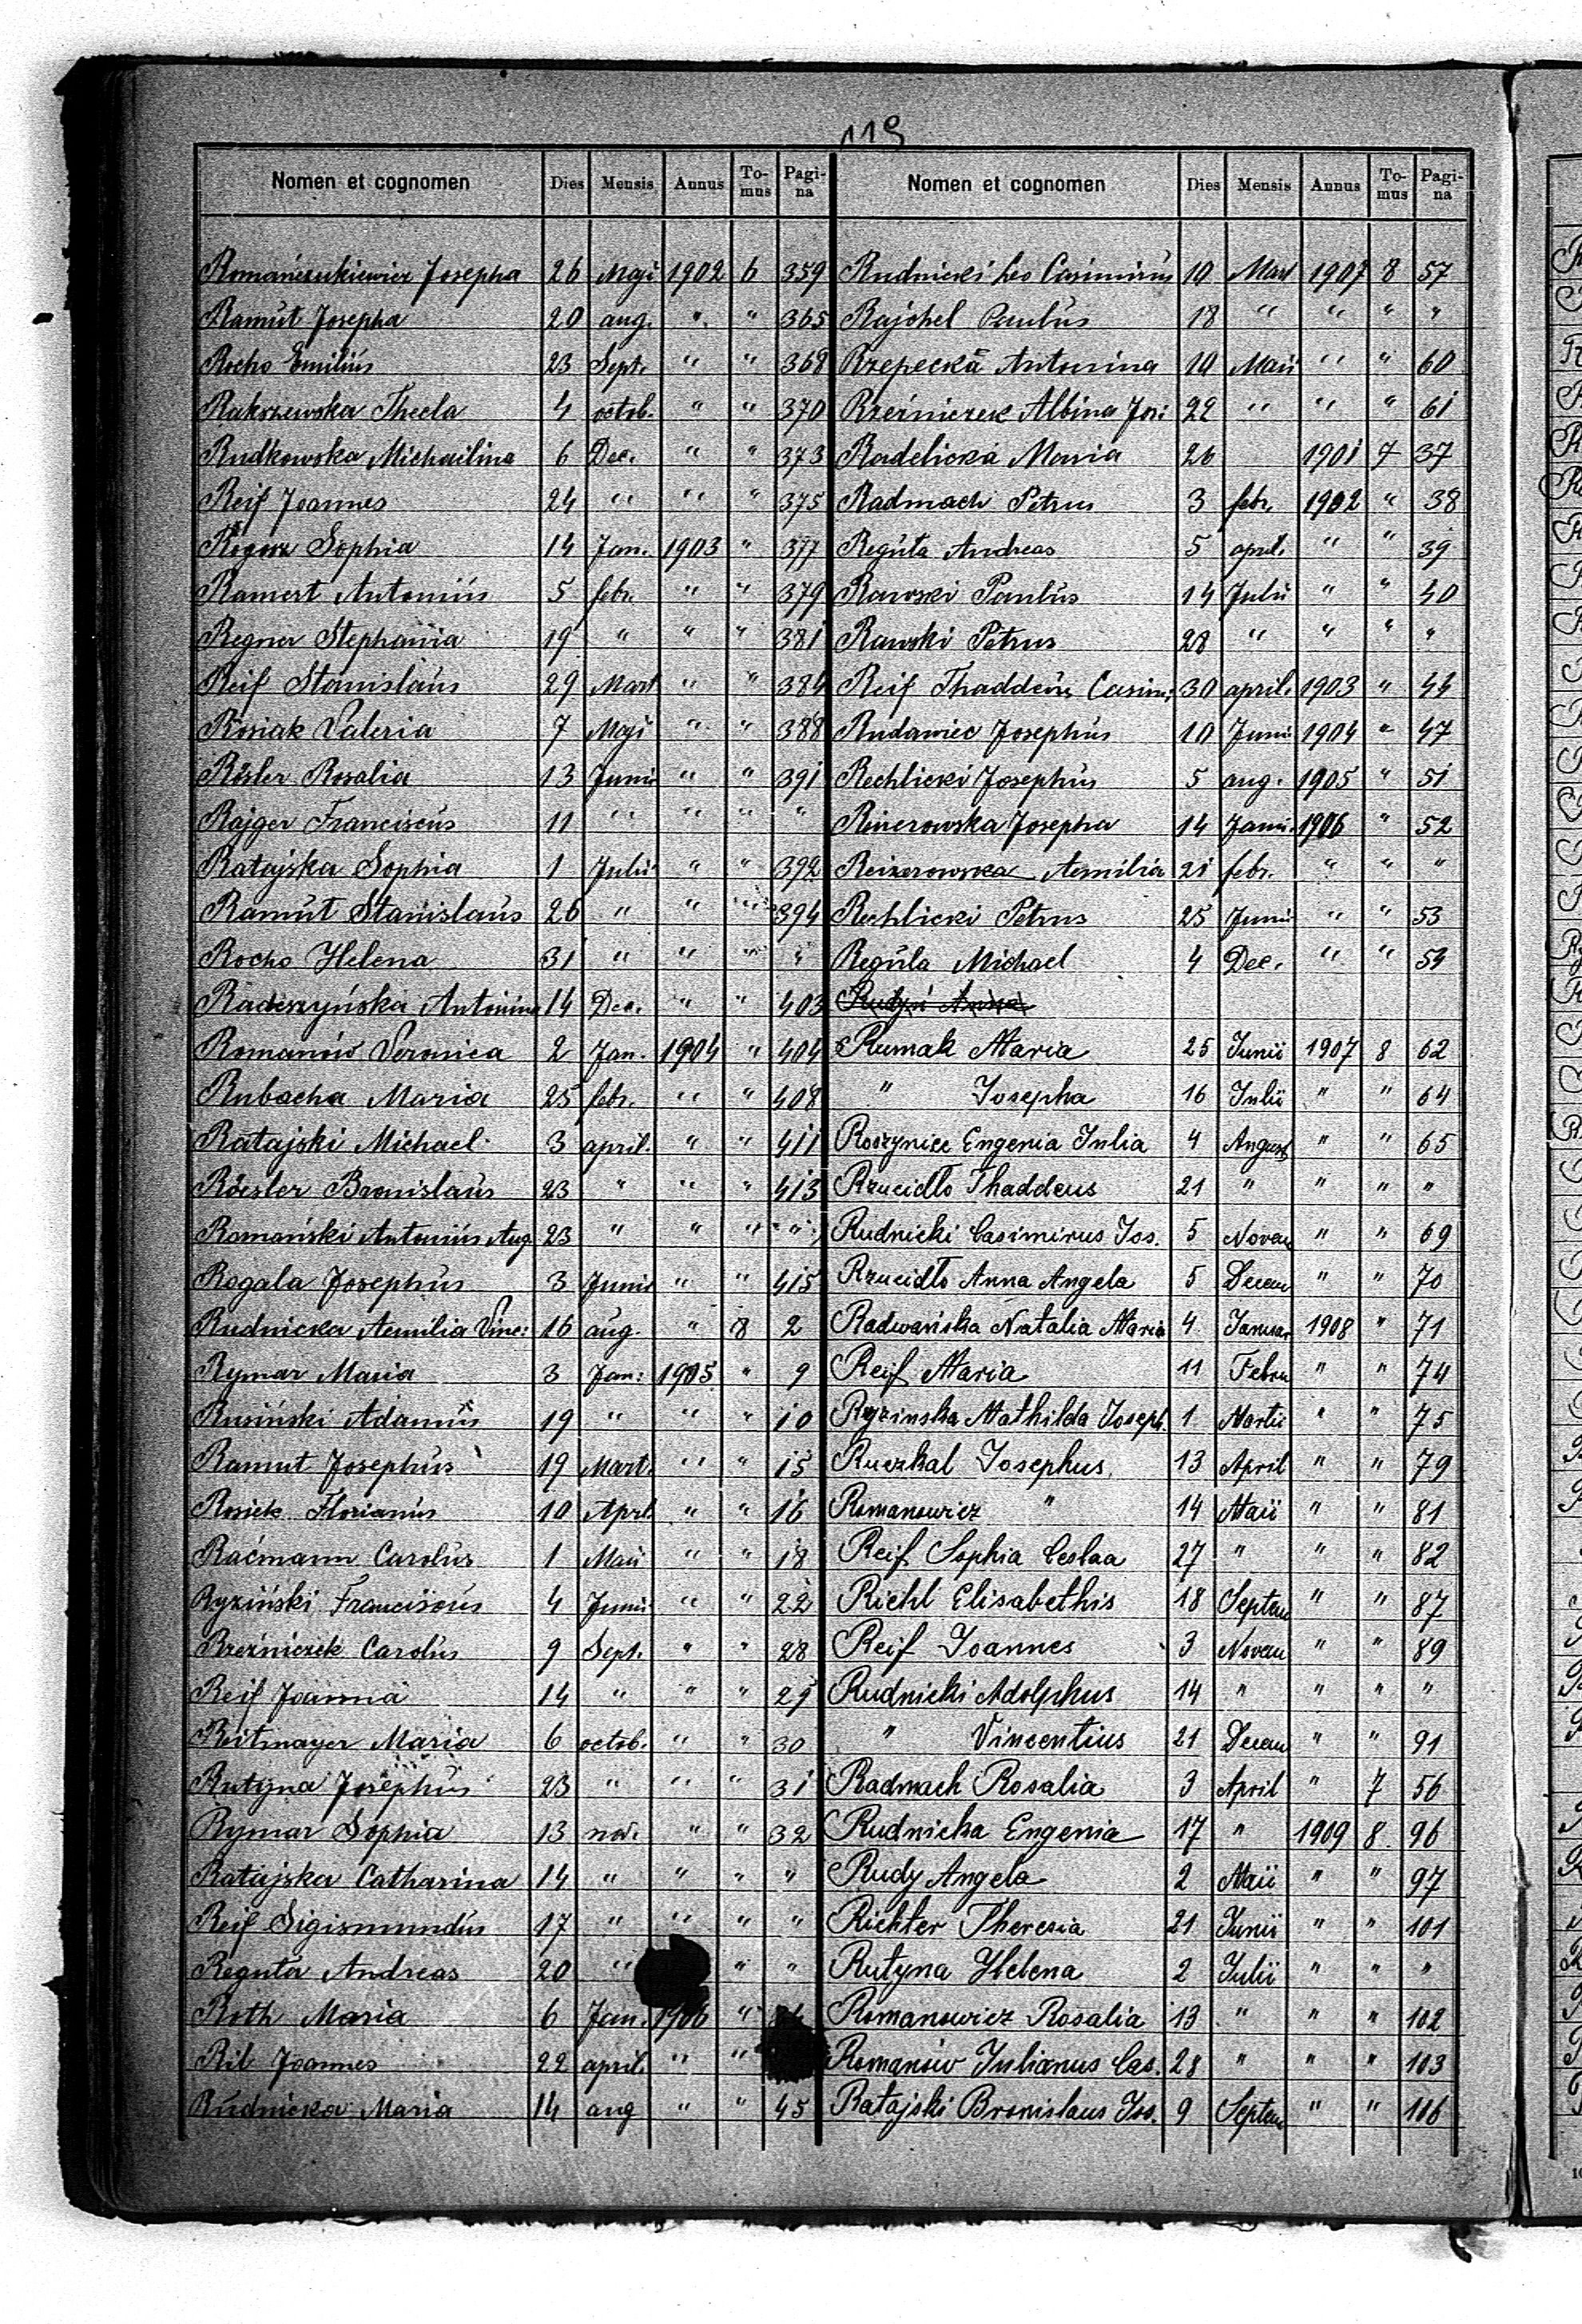 119
Nomen et cognomen Dies Mensis Annus To-mus Pagi-na
Romańczukiewicz Josepha 26 Maji 1902 6 359
Ramut Josepha 20 aug. " " 365
Rocho Emilius 23 Sept. " " 368
Rakszewska Thecla 4 octob. " " 370
Rudkowska Michailina 6 Dec. " " 373
Reif Joannes 24 " " " 375
Rogosz Sophia 14 Jan. 1903 " 377
Ramert Antonius 5 febr. " " 379
Regner Stephania 19 " " " 381
Reif Stanislaus 29 Mart " " 384
Rosiak Valeria 7 Maji " " 388
Rösler Rosalia 13 Junii " " 391
Rajger Franciscus 11 " " " "
Ratajska Sophia 1 Julii " " 392
Ramut Stanislaus 26 " " " 394
Rocho Helena 31 " " " "
Radeszyńska Antonina 14 Dec. " " 403
Romanów Veronica 2 Jan. 1904 " 404
Rubacha Maria 25 febr. " " 408
Ratajski Michael 3 april. " " 411
Röesler Bronislaus 23 " " " 413
Romański Antonius Aug. 23 " " " "
Rogala Josephus 3 Junii " " 415
Rudnicka Aemilia Vinc: 16 aug. " 8 2
Rymar Maria 3 Jan: 1905 " 9
Rusiński Adamus 19 " " " 10
Ramut Josephus 19 Mart. " " 15
Rosiek Florianus 10 Aprl " " 16
Raćmann Carolus 1 Maii " " 18
Ryziński Franciscus 4 Junii " " 22
Rzeźniczek Carolus 9 Sept. " " 28
Reif Joanna 14 " " " 29
Reitmayer Maria 6 octob. " " 30
Rutyna Josephus 23 " " " 31
Rymar Sophia 13 nov. " " 32
Ratajska Catharina 14 " " " "
Reif Sigismundus 17 " " " "
Reguła Andreas 20 " " "
Roth Maria 6 Jan. 1906 "
Ril Joannes 22 april. " "
Rudnicka Maria 14 aug " " 45
Nomen et cognomen Dies Mensis Annus To-mus Pagi-na
Rudnicki Leo Casimirus 10 Mart 1907 8 57
Rajchel Paulus 18 " " " "
Rzepecka Antonina 10 Maii " " 60
Rzeźniczek Albina Jos: 22 " " " 61
Radelicka Maria 26 1901 7 37
Radmach Petrus 3 febr. 1902 " 38
Reguła Andreas 5 april. " " 39
Rawski Paulus 14 Julii " " 40
Rawski Petrus 28 " " " "
Reif Thaddeus Casim: 30 april. 1903 " 44
Rudawiec Josephus 10 Junii 1904 " 47
Rechlicki Josephus 5 aug. 1905 " 51
Rinerowska Josepha 14 Janu. 1906 " 52
Reizerowska Aemilia 21 febr. " " "
Rechlicki Petrus 25 Junii " " 53
Regula Michael 4 Dec. " " 54
Rumak Maria 25 Junii 1907 8 62
" Josepha 16 Julii " " 64
Roszyniec Eugenia Julia 4 August " " 65
Rzucidło Thaddeus 21 " " " "
Rudnicki Casimirus Jos. 5 Novem " " 69
Rzucidło Anna Angela 5 Decem " " 70
Radwańska Natalia Maria 4 Januar 1908 " 71
Reif Maria 11 Febru " " 74
Ryzinska Mathilda Joseph. 1 Martii " " 75
Ruczkal Josephus 13 April " " 79
Romanowicz " 14 Maii " " 81
Reif Sophia Ceslaa 27 " " " 82
Riehl Elisabethis 18 Septem " " 87
Reif Joannes 3 Novem " " 89
Rudnicki Adolphus 14 " " " "
" Vincentius 21 Decem " " 91
Radmach Rosalia 3 April " 7 56
Rudnicka Eugenia 17 " 1909 8. 96
Rudy Angela 2 Maii " " 97
Richter Theresia 21 Junii " " 101
Rutyna Helena 2 Julii " " "
Romanowicz Rosalia 13 " " " 102
Romanów Julianus Cas. 28 " " " 103
Ratajski Bronislaus Jos. 9 Septem " " 106